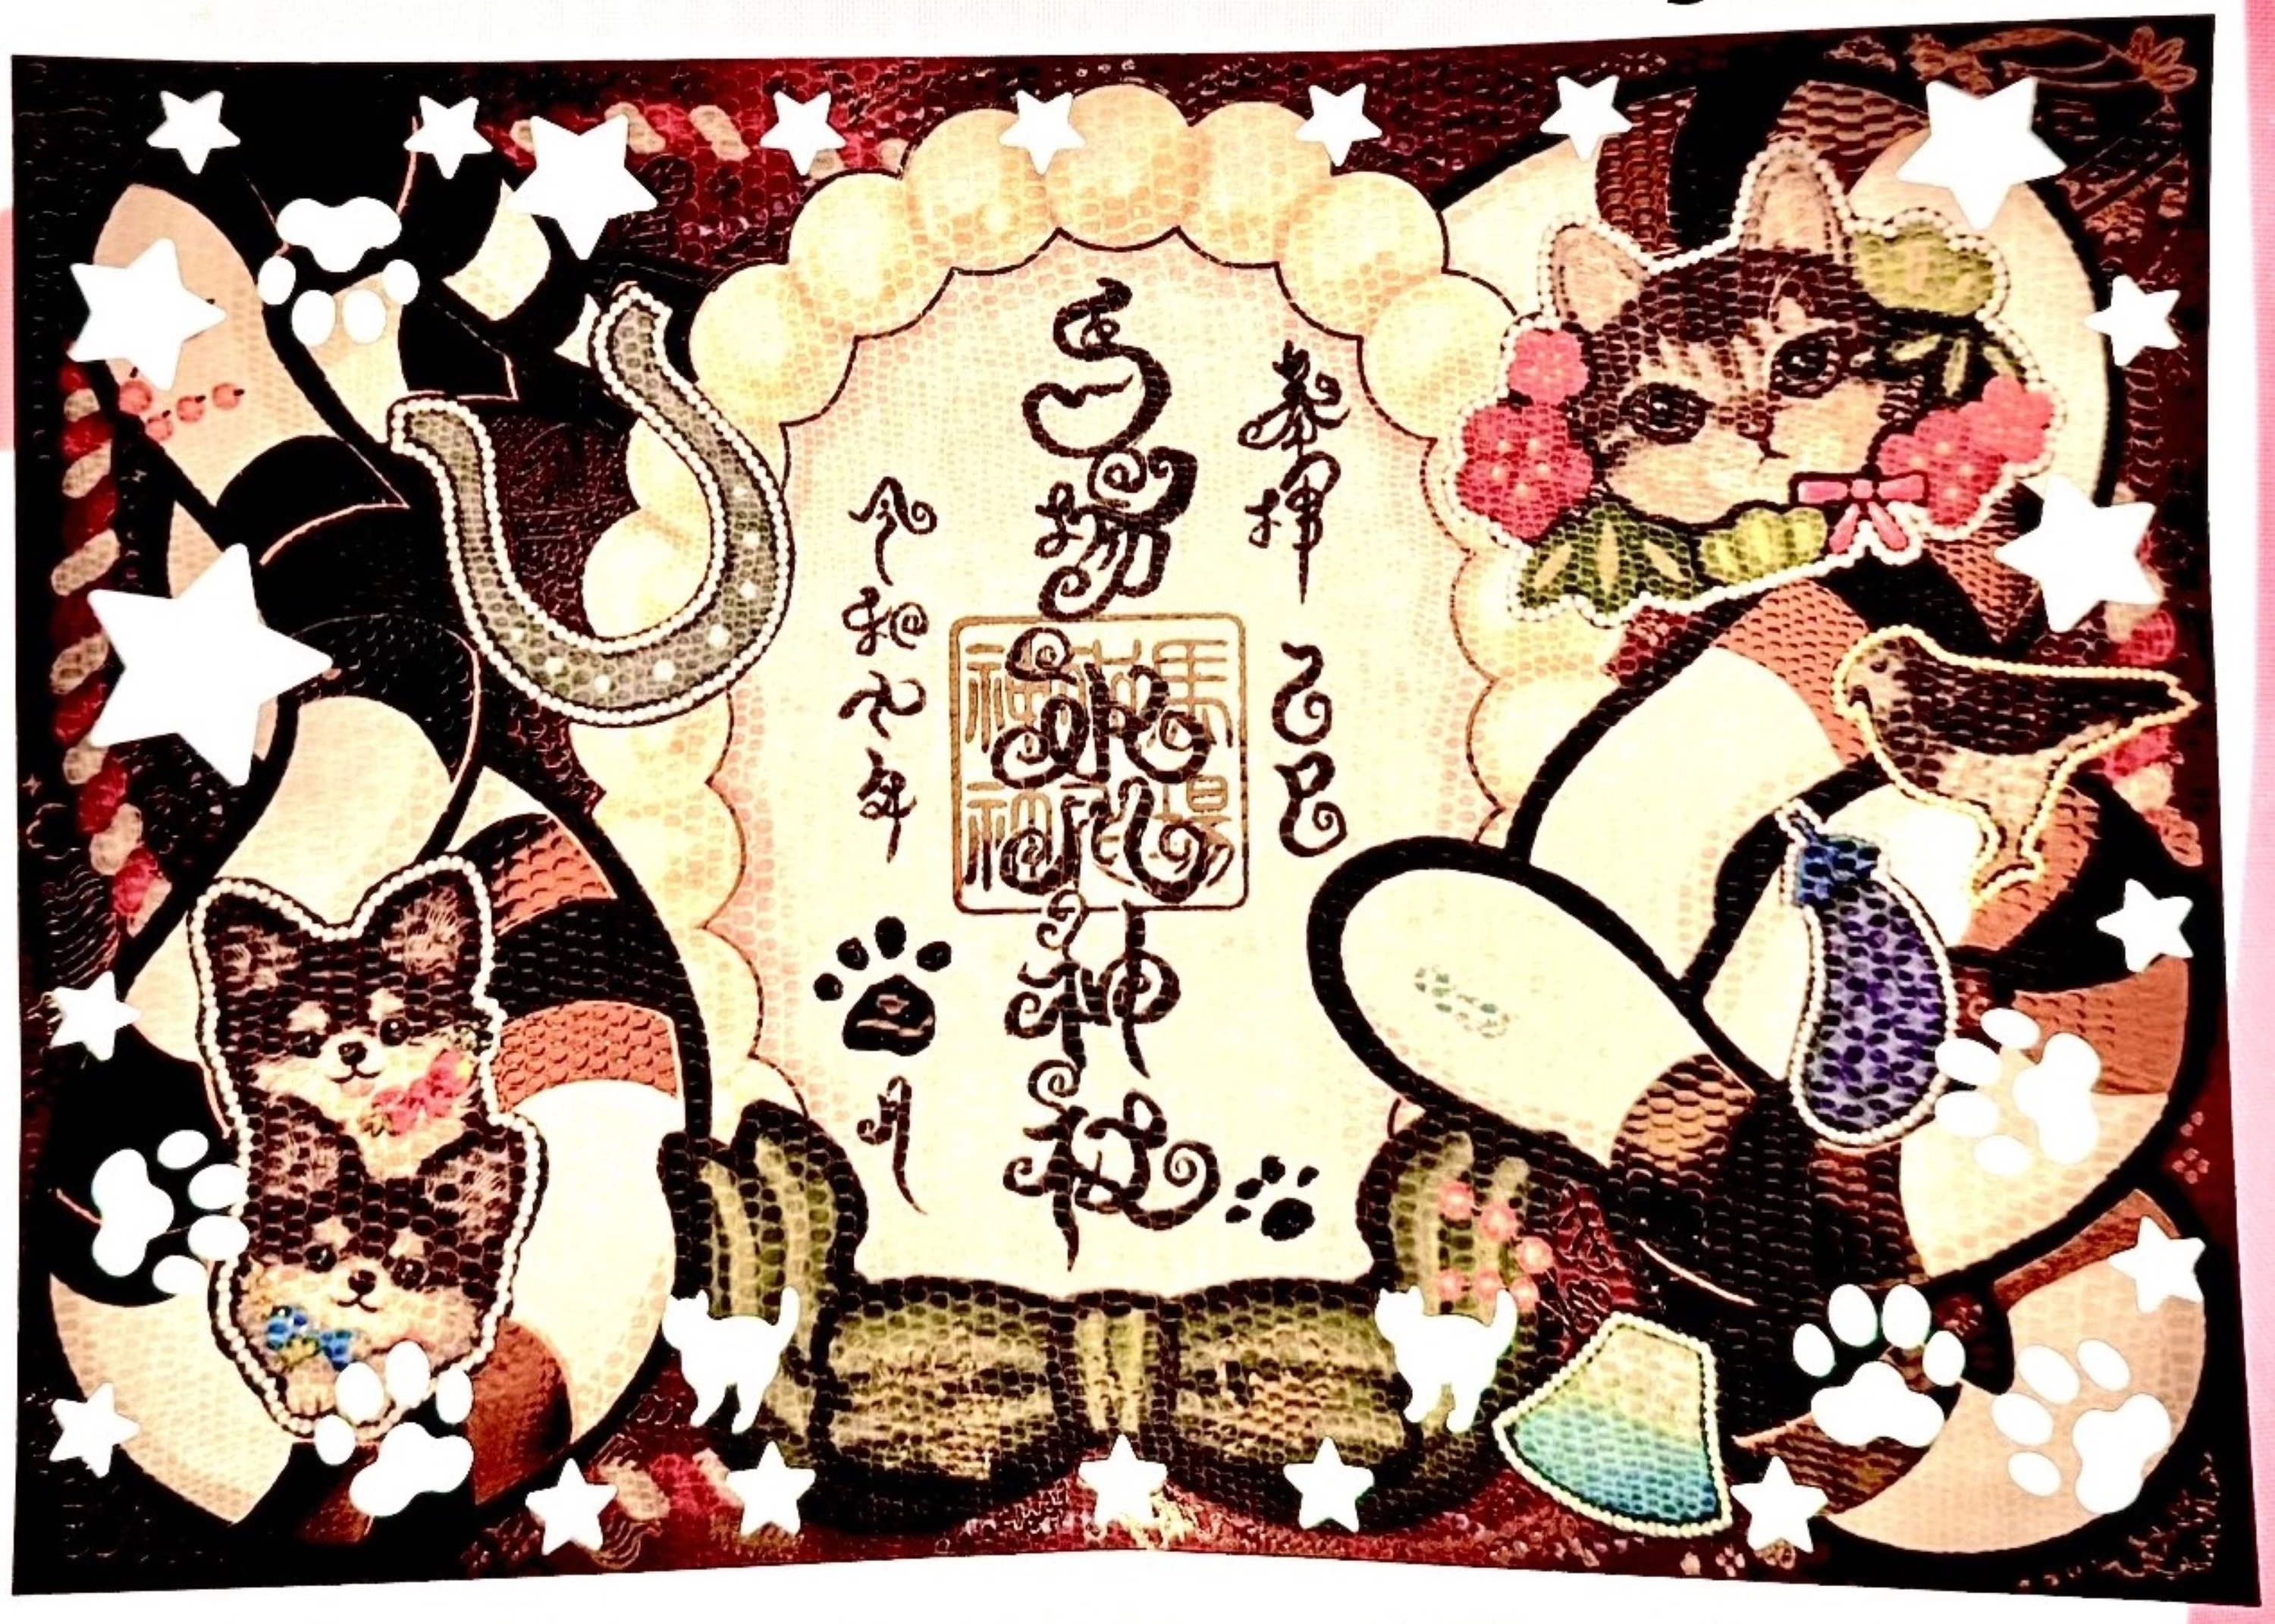 奉拝 乙巳
馬場氷川神社
令和七年 月
馬場氷川神社